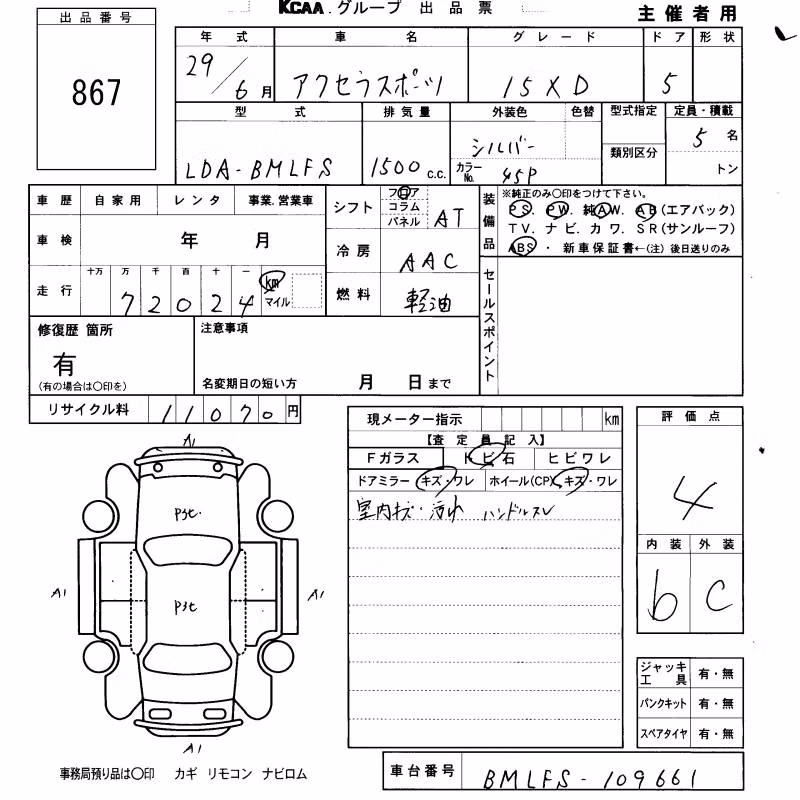 出品番号
KCAA.グループ 出品票
主催者用
867
年式 車名 グレード ドア 形状
29/6月 アクセラスポーツ 15XD 5
型式 排気量 外装色 色替 型式指定 定員・積載
類別区分
LDA-BMLFS 1500 c.c. シルバー 5名
カラーNo. 45P トン
車歴 自家用 レンタ 事業.営業車
シフト フロア コラム パネル AT
車検 年 月
冷房 AAC
走行 十万 万 千 百 十 一
72024 km マイル
燃料 軽油
装備品 ※純正のみ○印をつけて下さい。
PS. PW. 純AW. AB(エアバック)
TV. ナビ. カワ. SR(サンルーフ)
ABS ・ 新車保証書←(注) 後日送りのみ
セールスポイント
修復歴 箇所 注意事項
有
(有の場合は○印を) 名変期日の短い方 月 日まで
リサイクル料 11070円
現メーター指示 km
【査定員記入】
Fガラス トビ石 ヒビワレ
ドアミラー キズ・ワレ ホイール(CP) キズ・ワレ
室内キズ・汚れ ハンドルスレ
評価点
4
内装 外装
b C
ジャッキ工具 有・無
パンクキット 有・無
スペアタイヤ 有・無
A1
P3t.
A1 P3t A1
A1
事務局預り品は○印 カギ リモコン ナビロム
車台番号 BMLFS-109661